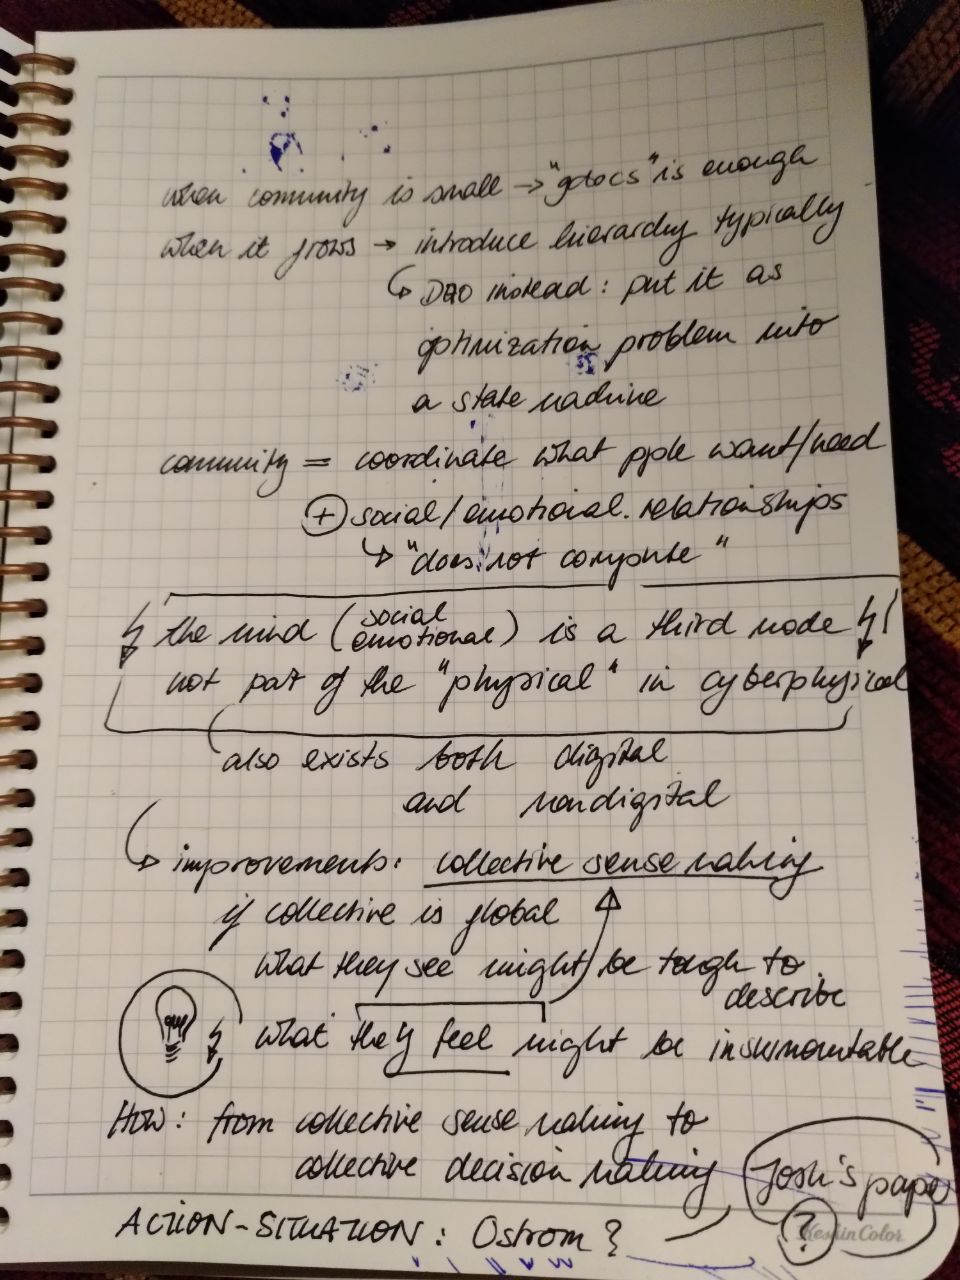 when community is small → "gdocs" is enough
when it grows → introduce hierarchy typically
↳ DAO instead: put it as
optimization problem into
a state machine
community = coordinate what pple want/need
⊕ social/emotional. relationships
↳ "does not compute"
the mind (social emotional) is a third node
not part of the "physical" in cyberphysical
also exists both digital
and nondigital
↳ improvements: collective sense making
if collective is global
what they see might be tough to
describe
what they feel might be insurmountable
How: from collective sense making to
collective decision making
Josh's paper
ACTION-SITUATION: Ostrom?
?
KeshinColor